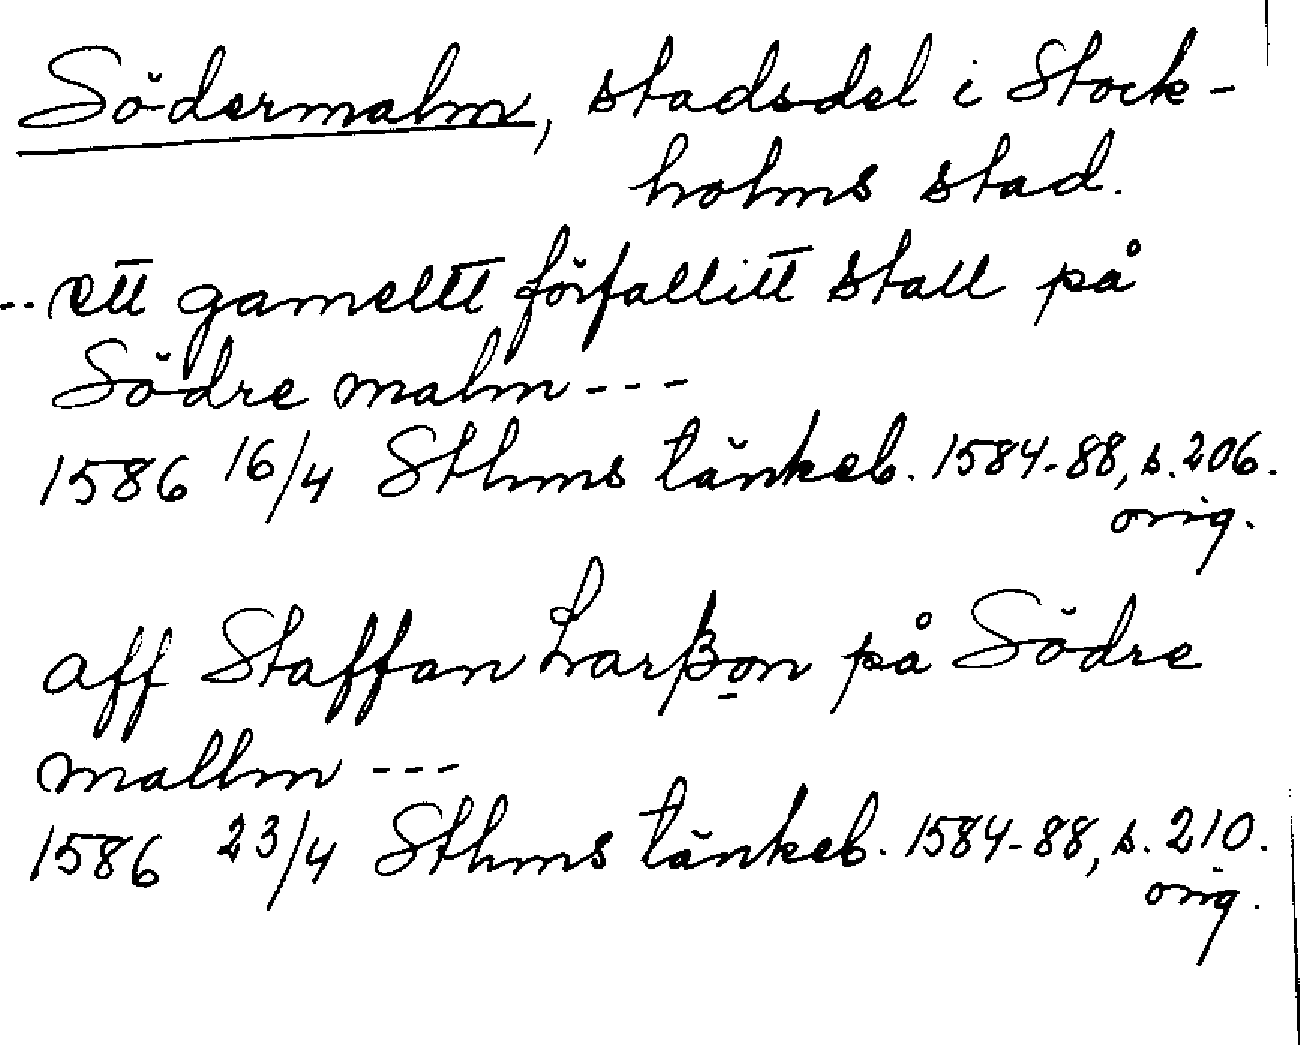 Södermalm, stadsdel i Stock-
holms stad.
-- ett gamelltt förfallitt stall på
Södre malm ---
1586 16/4 Sthms tänkeb. 1584-88, s. 206.
orig.
aff Staffan Larßon på Södre
mallm ---
1586 23/4 Sthms tänkeb. 1584-88, s. 210.
orig.